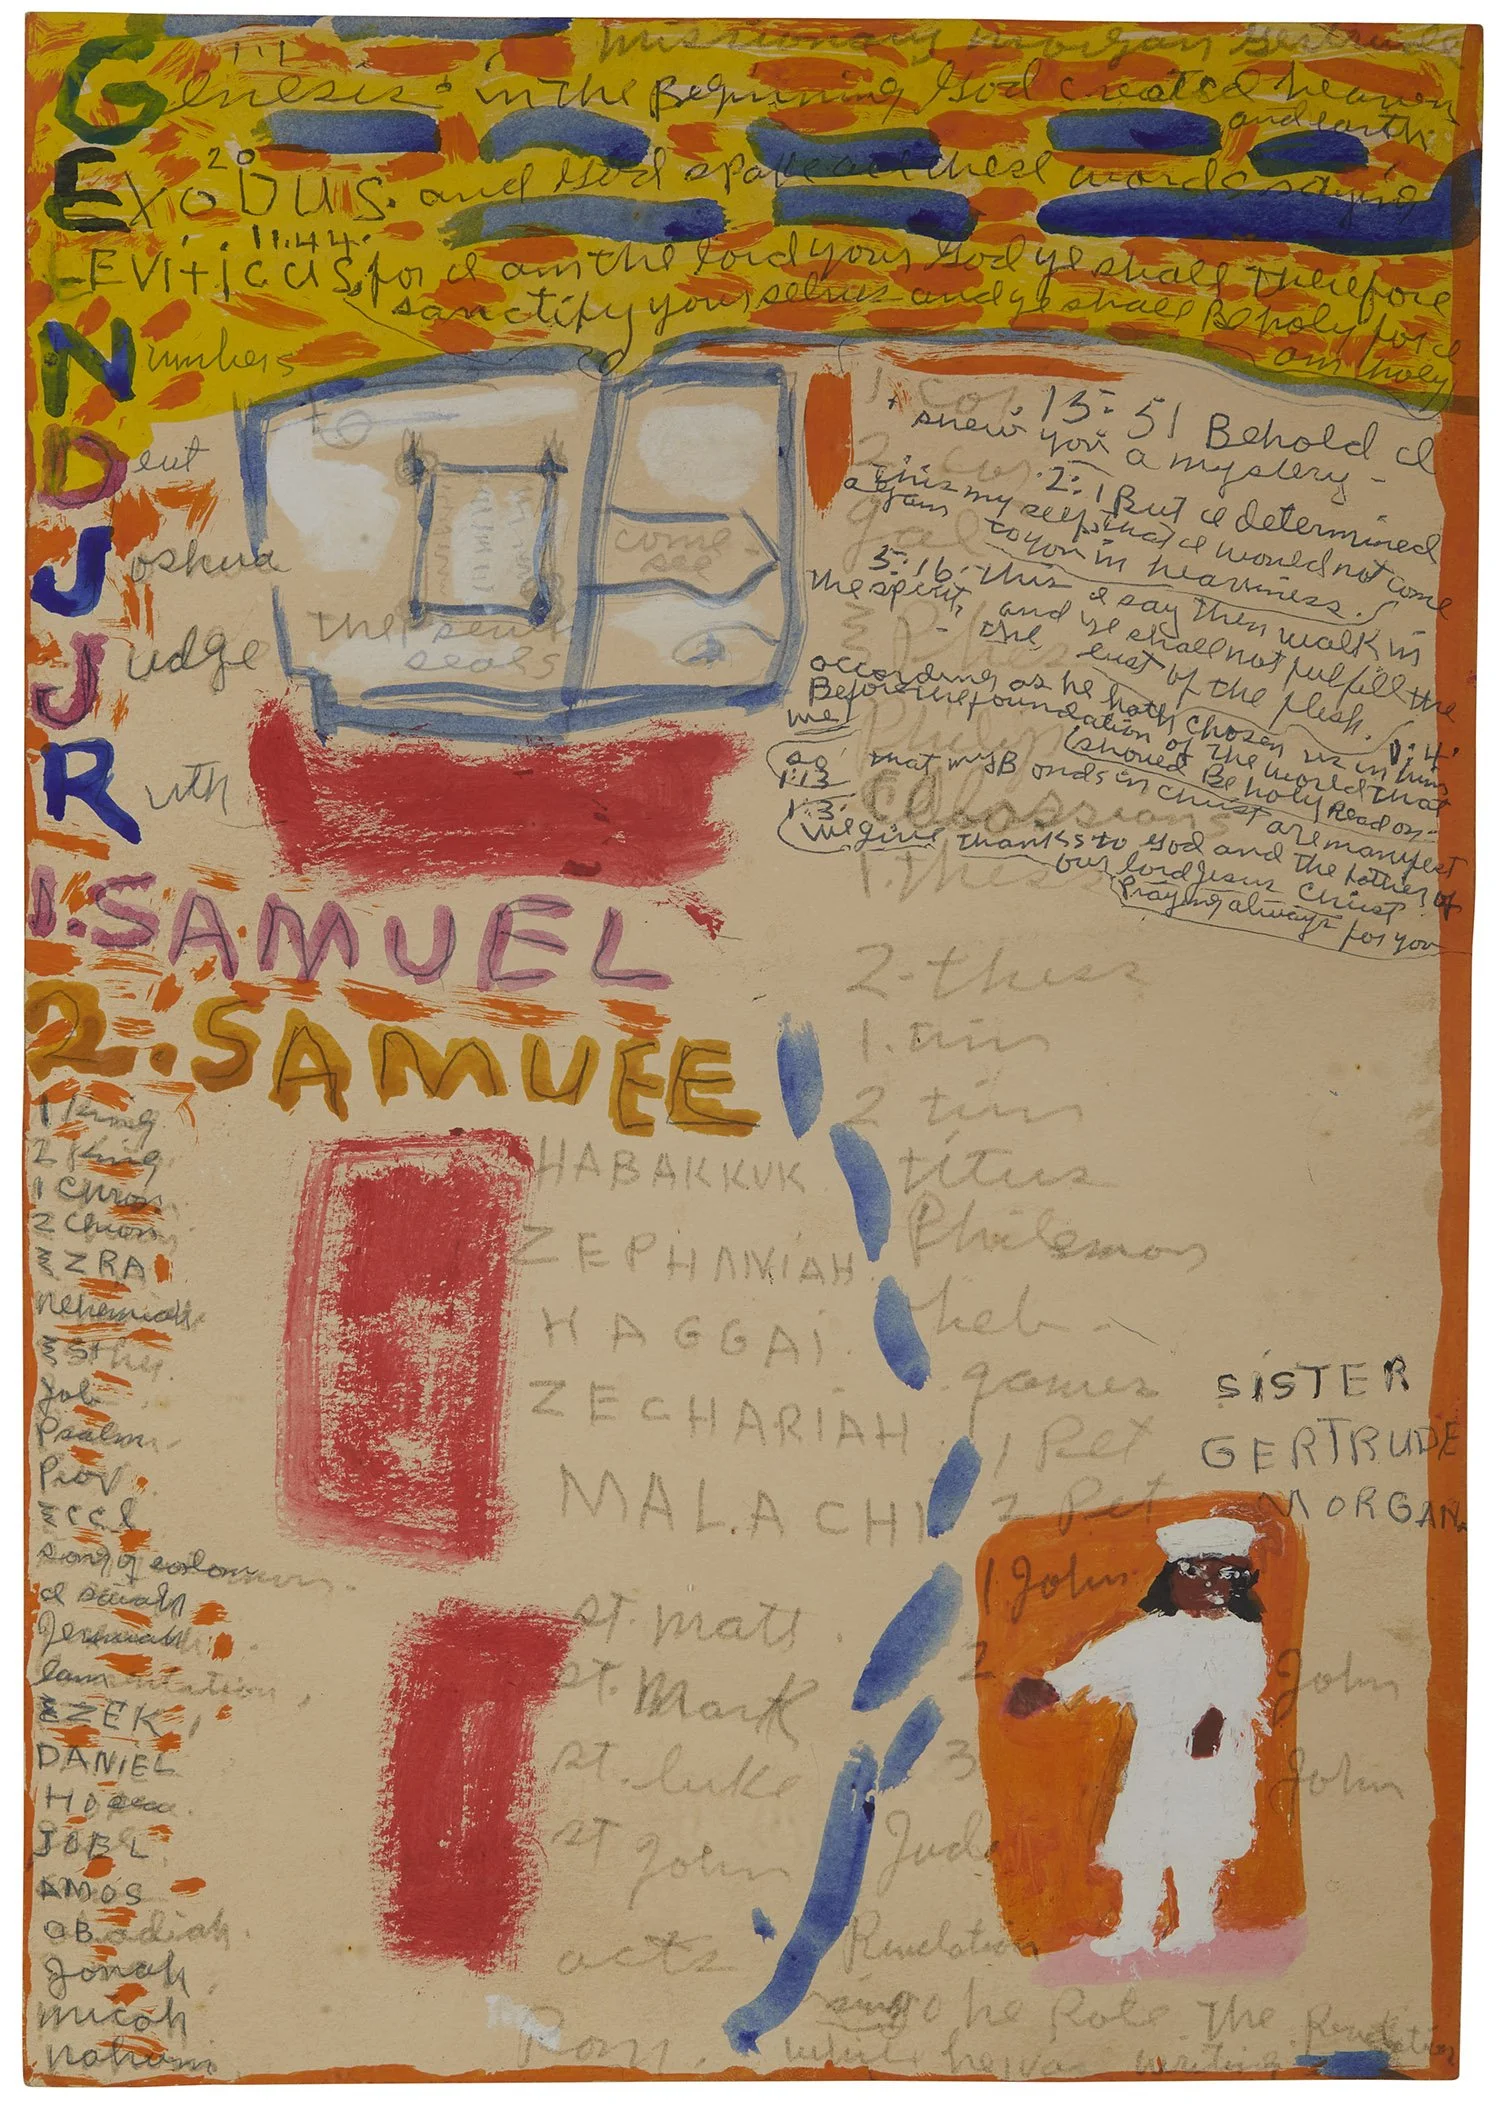 missionary morgan Gertrude
1:1
Genesis: in the Beginning God created heaven
and earth
20
EXODUS. and God spake all these words saying
11.44.
LEVITICUS, for I am the lord your God ye shall therefore
sanctify yourselves and ye shall Be holy for I
am holy
Numbers
Deut
Joshua
Judge
Ruth
1.SAMUEL
2.SAMUEL
1 King
2 King
1 Chron
2 Chron
EZRA
Nehemiah
Esther
Job
Psalm
Prov
Eccl
song of solomon
Jeremiah
lamentation,
EZEK,
DANIEL
JOEL
AMOS
OBadiah.
Jonah
micah
nahum
to
come
see
the seven
seals
1. Cor 15:51 Behold I
shew you a mystery -
2 Cor 2:1 But I determined
this my self, that I would not come
again to you in heaviness.
gal
5:16. this I say then walk in
the spirit, and ye shall not fulfill the
lust of the flesh.
1:4.
according as he hath chosen us in him
Before the foundation of the world that
we should Be holy Read on-
Philip
1:13 so that my Bonds in Christ are manifest
Colossians
1:3.
we give thanks to God and the father of
our lord Jesus Christ
Praying always for you
1. Thess
2-thess
1. tim
2 tim
titus
Philemon
heb-
James
1 Pet
2 Pet
1 John
2 John
3 John
Jude
Revelation
HABAKKUK
ZEPHANIAH
HAGGAI
ZECHARIAH
MALACHI
st. matt.
st. Mark
st. luke
st John
acts
Rom.
SISTER
GERTRUDE
MORGAN.
he Role The Revelation
while he was writing